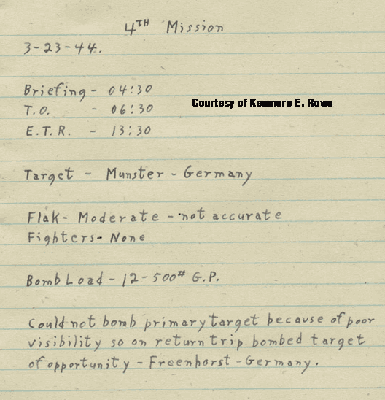 4TH Mission
3-23-44.
Briefing - 04:30
T.O. - 06:30
Courtesy of Kenmore E. Rowe
E.T.R. - 13:30
Target - Munster - Germany
Flak - Moderate - not accurate
Fighters - None
Bomb Load - 12-500# G.P.
Could not bomb primary target because of poor
visibility so on return trip bombed target
of opportunity - Freenhorst - Germany.